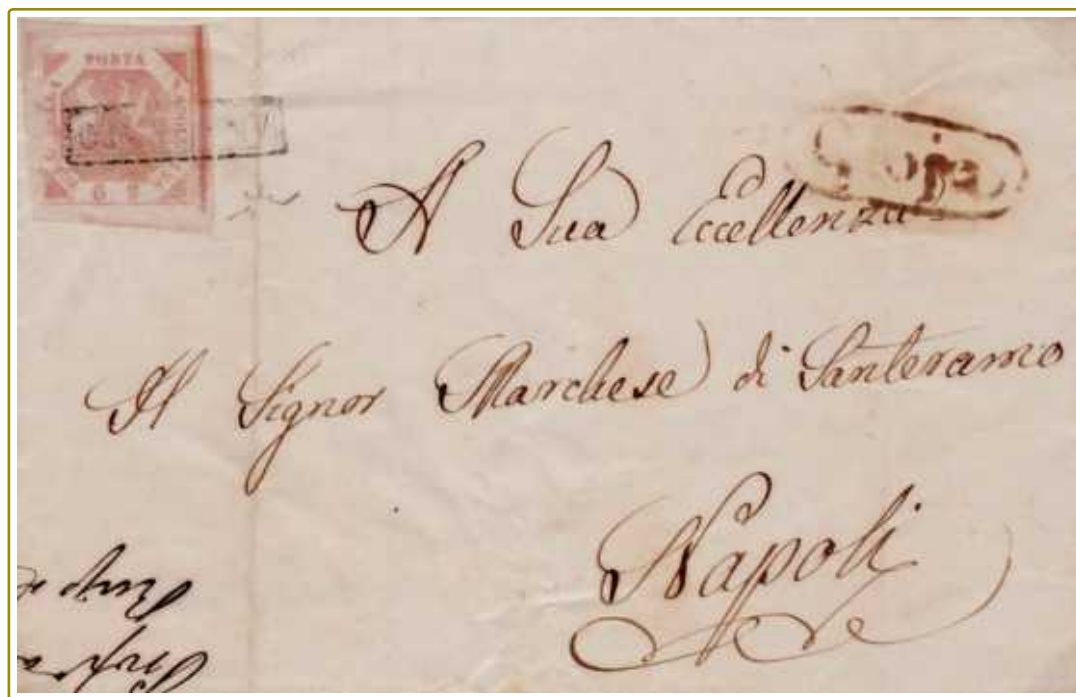 POSTA
A Sua Eccellenza
Gioja
Il Signor Marchese di Santeramo
Napoli